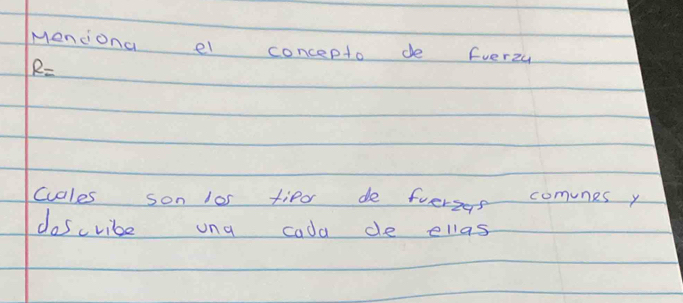 Menciona el concepto de fuerza
R=
Cuales son los tipos de fuerzas comunes y
describe una cada de ellas